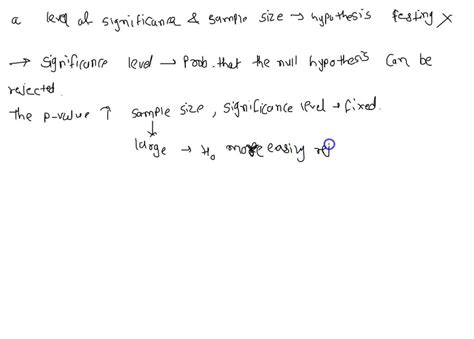 a level of significance & sample size → hypothesis testing ×
→ Significance level → Prob. that the null hypothesis can be
rejected.
The p-value ↑ sample size, significance level → fixed.
↓
large → H₀ more easily rej